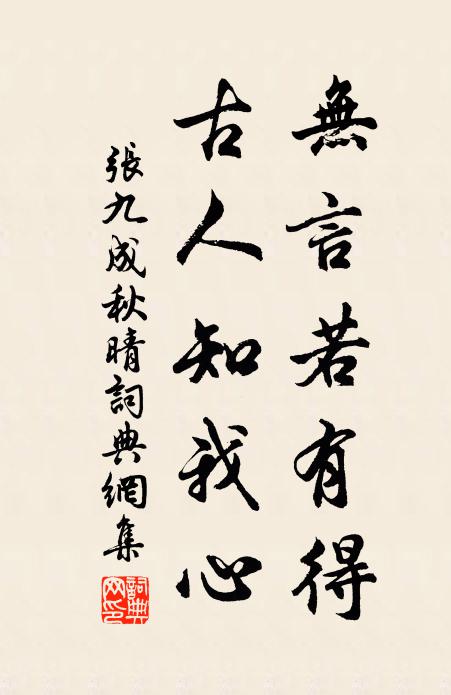 無言若有得
古人知我心
張九成秋晴詞典網集
詞典
網印